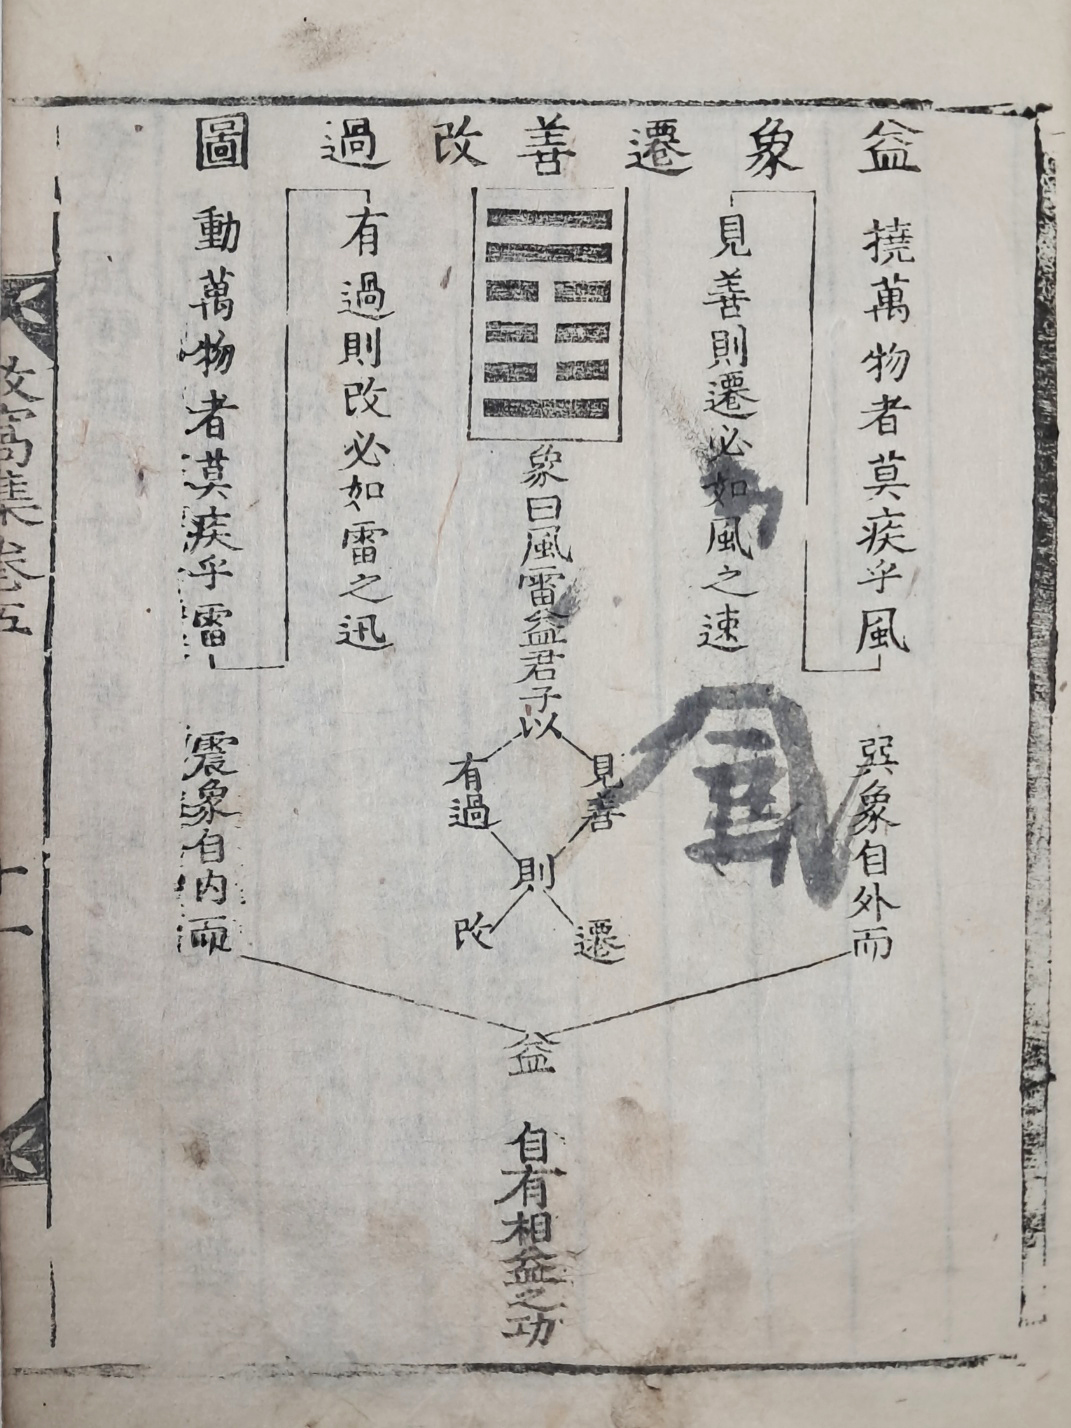 益象遷善改過圖
撓萬物者莫疾乎風
巽象自外而
見善則遷必如風之速
象曰風雷益君子以
見善
有過
則
遷
改
益
自有相益之功
有過則改必如雷之迅
動萬物者莫疾乎雷
震象自內而
窩集卷五
十一